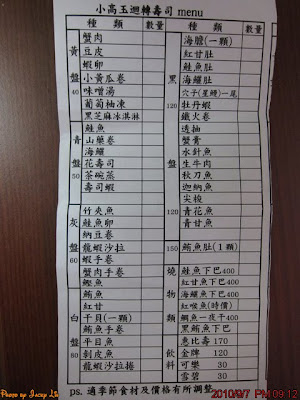 小高玉迴轉壽司 menu
種類 數量 種類 數量
黃盤40
蟹肉
豆皮
蝦卵
小黃瓜卷
味噌湯
葡萄柚凍
黑芝麻冰淇淋
青盤50
鮭魚
山藥卷
海鱺
花壽司
茶碗蒸
壽司蝦
灰盤60
竹夾魚
鮭魚卵
納豆卷
龍蝦沙拉
蝦手卷
蟹肉手卷
白盤80
鰹魚
鮪魚
紅甘
干貝(一顆)
鮪魚手卷
平目魚
剝皮魚
龍蝦沙拉捲
黑120盤120
海膽(一顆)
紅甘肚
鮭魚肚
海鱺肚
穴子(星鰻)一尾
牡丹蝦
鐵火卷
透抽
蟹膏
水針魚
生牛肉
秋刀魚
迦納魚
尖梭
青花魚
青甘魚
150
鮪魚肚(1顆)
燒物類
鮭魚下巴400
紅甘魚下巴400
紅喉魚(時價)
鯛魚一夜干400
黑鮪魚下巴
飲料
惠比壽 170
金牌 120
可樂 30
雪碧 30
ps. 適季節食材及價格有所調整
2010/9/7 PM 09:12